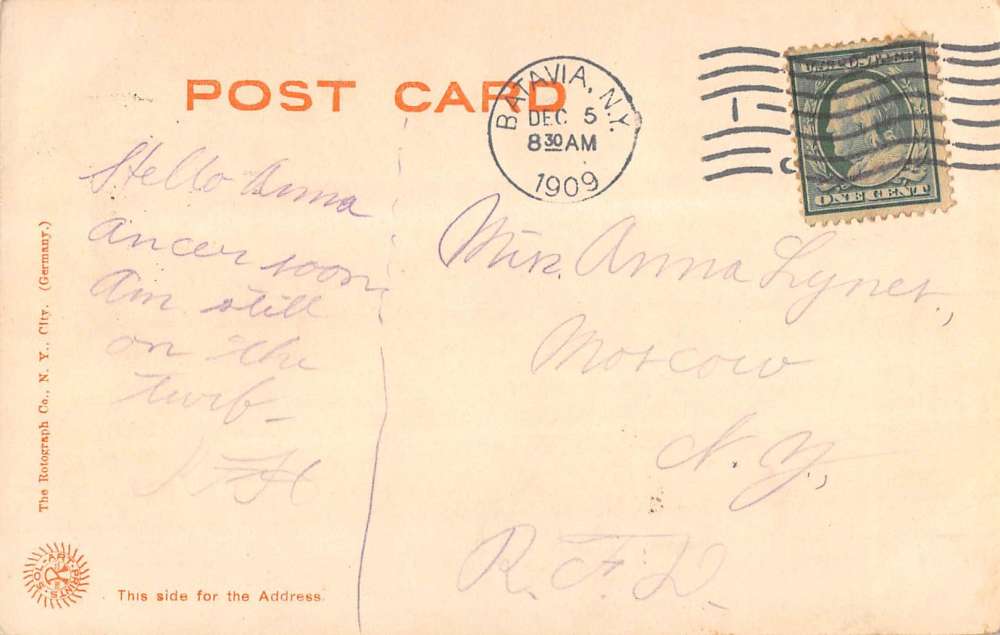 POST CARD
BATAVIA, N.Y.
DEC 5
8 30 AM
1909
ONE CENT
Hello Anna
ancer soon
Am still
on the
twif-
Miss. Anna Lyner,
Moscow
N.Y,
R.F.D.
The Rotograph Co., N. Y., City. (Germany.)
SOL-ART PRINTS
This side for the Address.